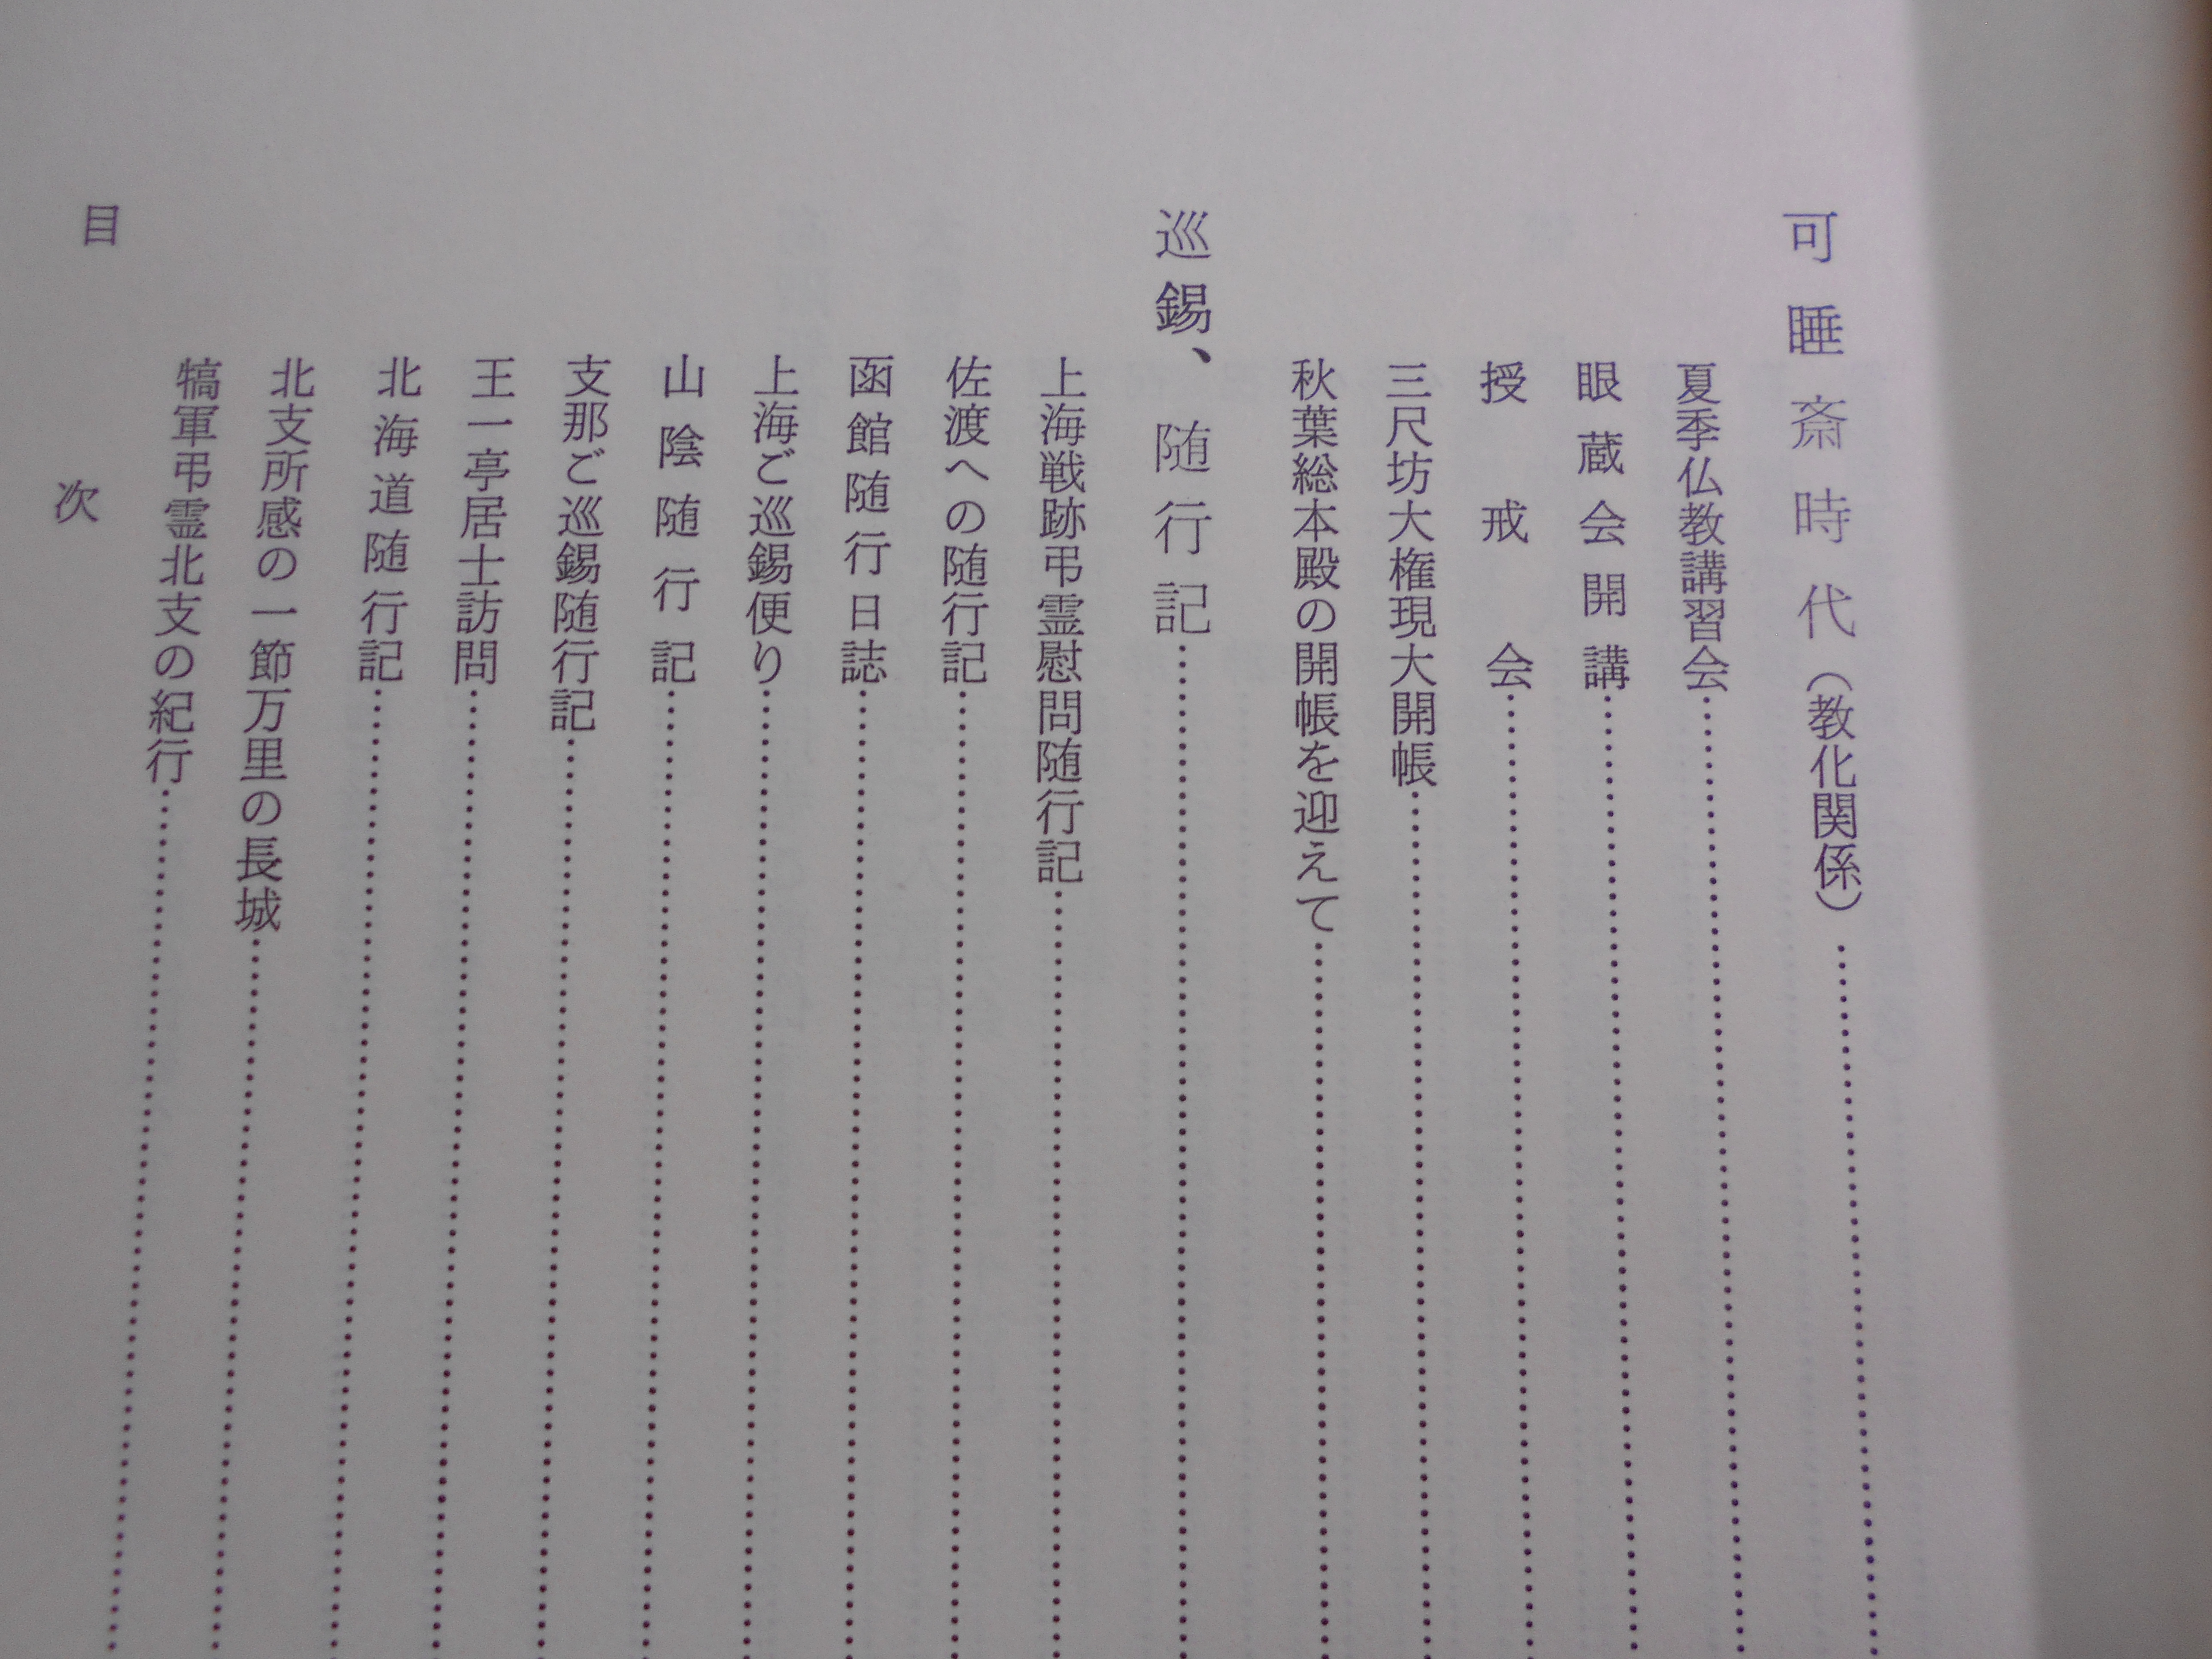 可睡斎時代（教化関係）……
夏季仏教講習会……
眼蔵会開講……
授戒会……
三尺坊大権現大開帳……
秋葉総本殿の開帳を迎えて……
巡錫、随行記……
上海戦跡弔霊慰問随行記……
佐渡への随行記……
函館随行日誌……
上海ご巡錫便り……
山陰随行記……
支那ご巡錫随行記……
王一亭居士訪問……
北海道随行記……
北支所感の一節万里の長城……
犒軍弔霊北支の紀行……
目次